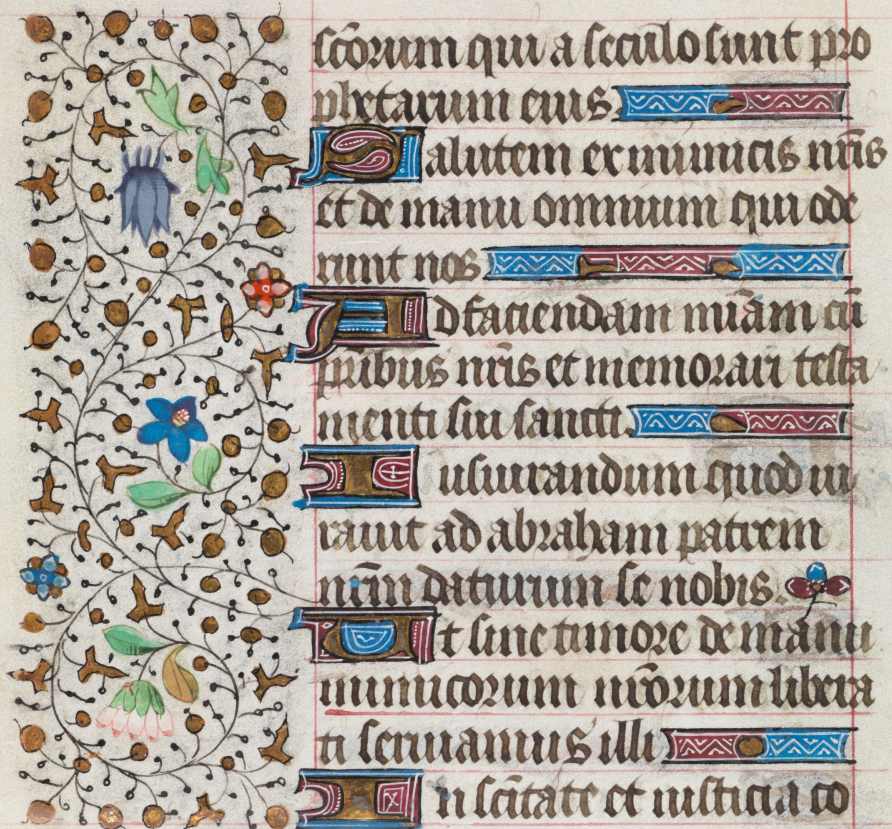 sc̄orum qui a seculo sunt pro
phetarum eius
Salutem ex inimicis nr̄is
et de manu omnium qui ode
runt nos
Ad faciendam mīam cū
pr̄ibus nr̄is et memorari testa
menti sui sancti
Iusiurandum quod iu
rauit ad abraham patrem
nr̄m daturum se nobis.
Ut sine timore de manu
inimicorum nr̄orum libera
ti seruiamus illi
In sc̄itate et iusticia co